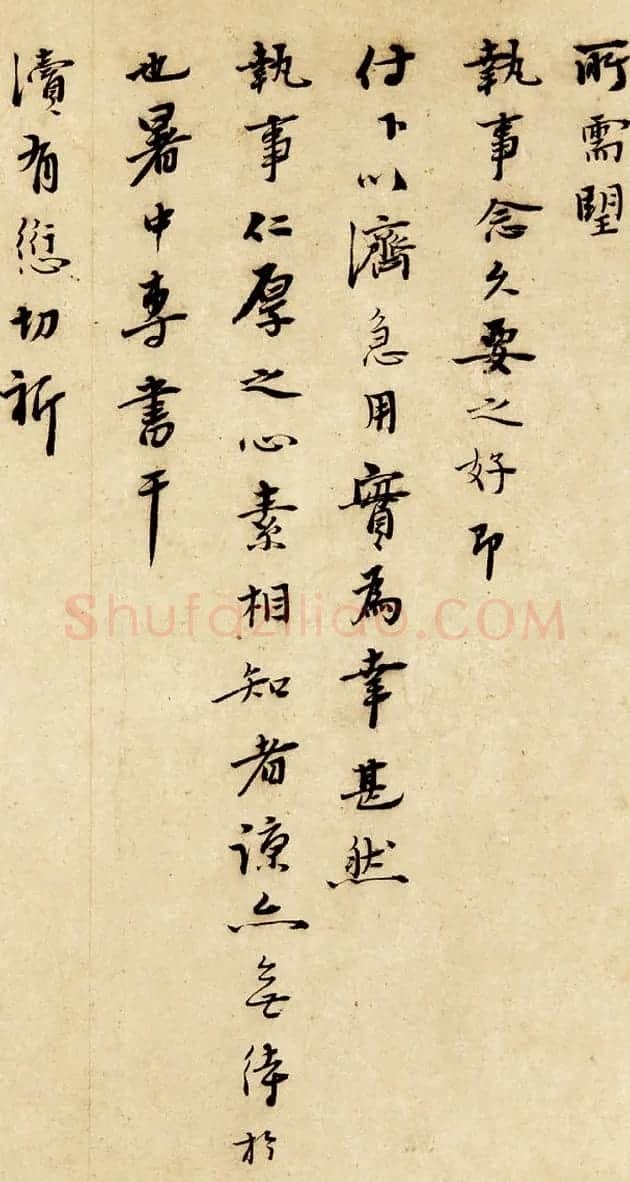 所需望
執事念久要之好即
付下以濟急用實為幸甚然
執事仁厚之心素相知者諒亦無待於
也暑中專書干
瀆有愆切祈
Shufaziliao.COM